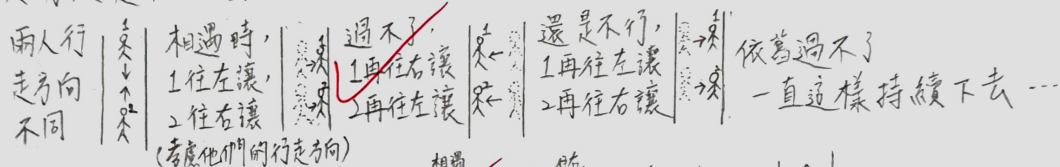 兩人行
走方向
不同
1
2
相遇時，
1往左讓，
2往右讓
(考慮他們的行走方向)
1
2
過不了，
1再往右讓
2再往左讓
1
2
還是不行，
1再往左讓
2再往右讓
1
2
依舊過不了
一直這樣持續下去…
相遇